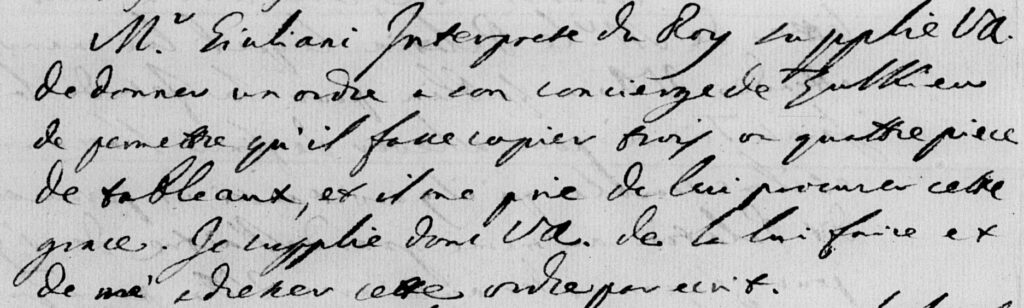 Mr. Giuliani Interprete du Roy supplie VA.
de donner un ordre a son concierge de
de permettre qu'il fasse copier trois ou quattre piece
de tableaux, et il me prie de lui procurer cette
grace. Je supplie donc VA. de la lui faire et
de me adresser cette ordre par ecrit.